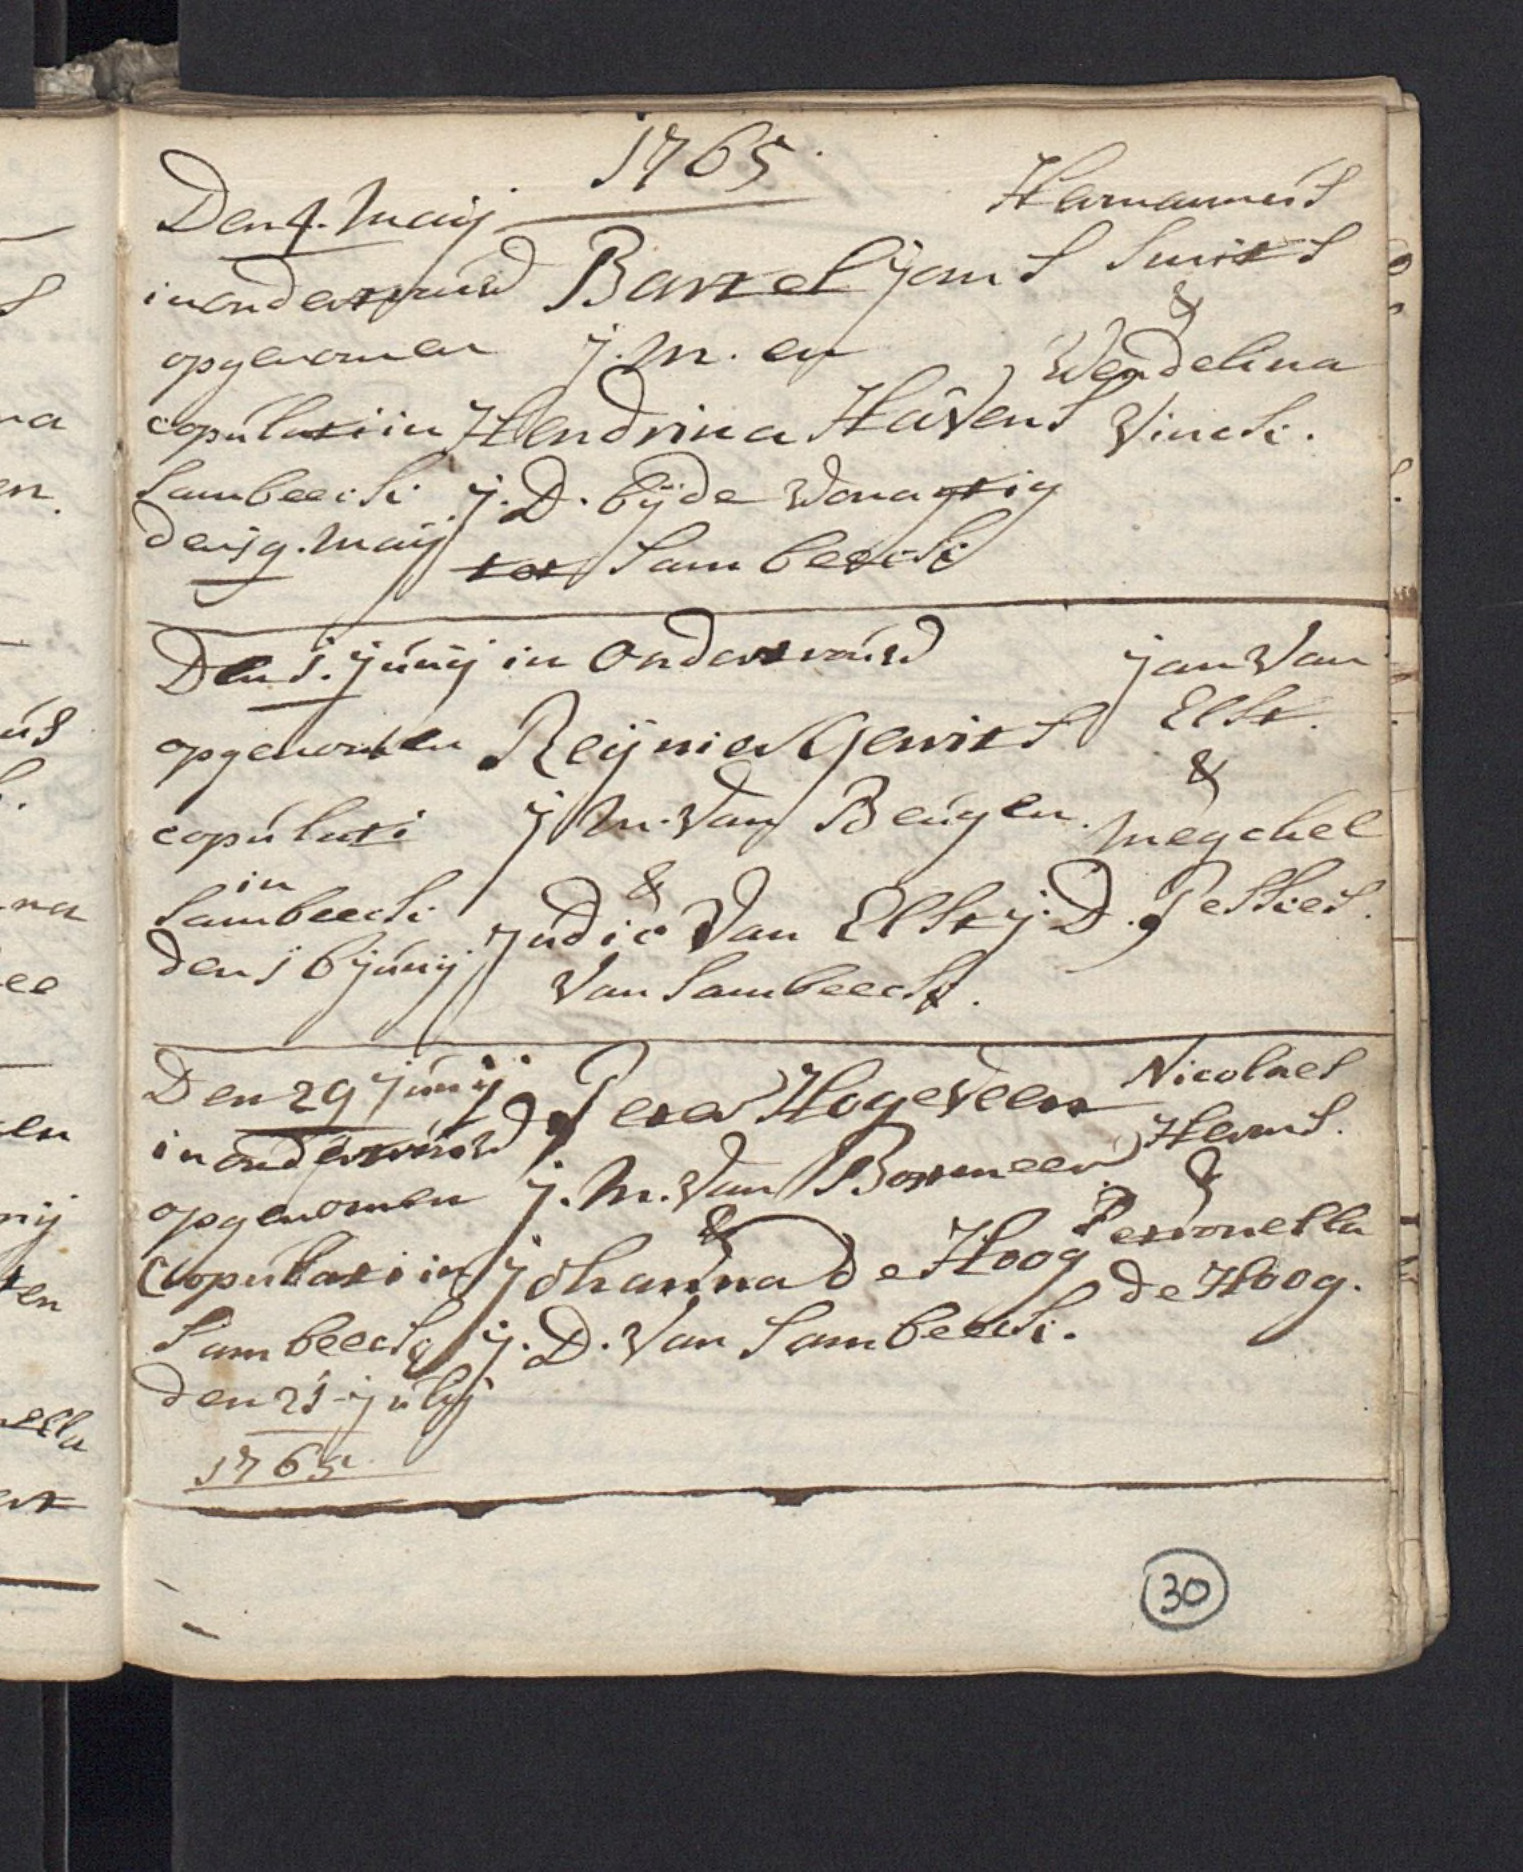 1765
Den 4. Maij
in ondertrouw
opgenomen
copulati in
Sambeeck
den 19. Maij
Bartel Jans
j.m. en
Hendrina Havens
j.D. bijde Wonagtig
tot Sambeeck
Harmannus
Smits
&
Wendelina
Vinck.
Den 1. Junij in Ondertrouw
opgenomen
copulati
in
Sambeeck
den 16 junij
Reijnier Gerrits
j m. van Beugen.
&
Judic Van Elst j.D.
Van Sambeeck.
jan Van
Elst.
&
Megchel
Peskes.
Den 29 junij
in ondertrouw
opgenomen
Copulati in
Sambeeck
den 21 julij
1765
Peter Hogeveen
j.m. Van Boxmeer
&
johanna de Hoog
j.D. Van Sambeeck.
Nicolaes
Herms.
&
Petronella
de Hoog.
30